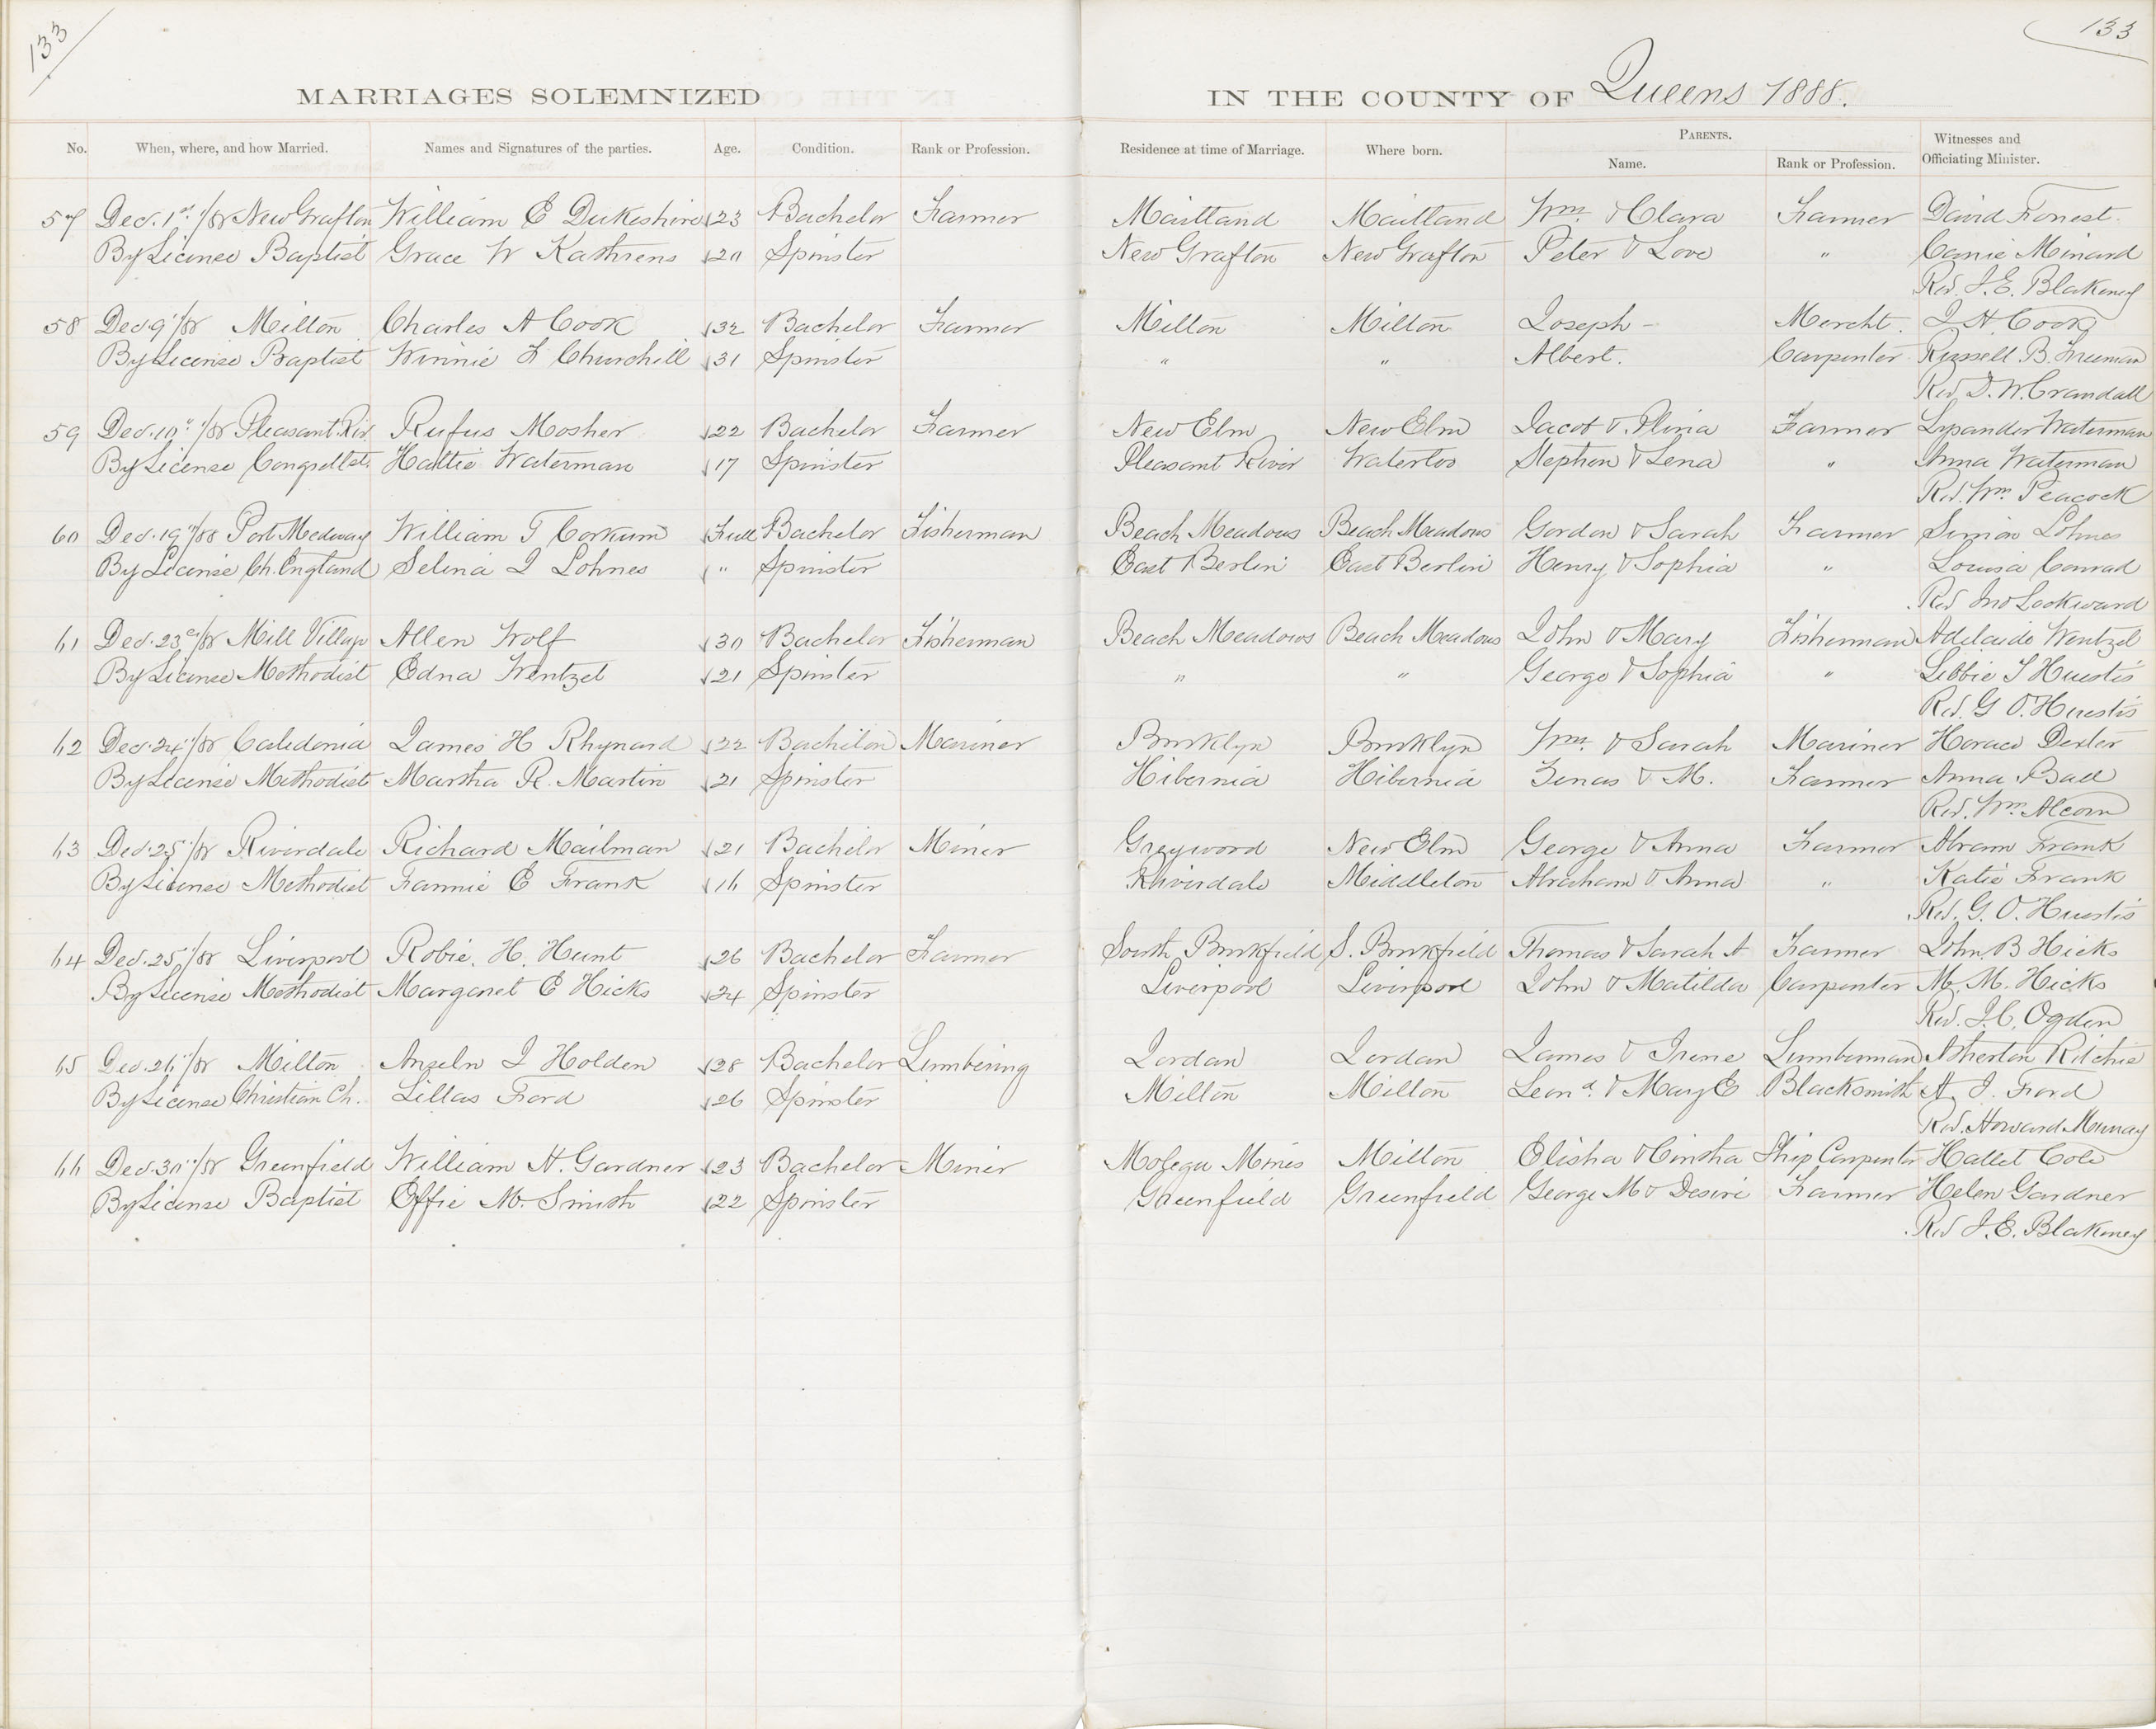 133
133
MARRIAGES SOLEMNIZED IN THE COUNTY OF Queens 1888.
No. When, where, and how Married. Names and Signatures of the parties. Age. Condition. Rank or Profession. Residence at time of Marriage. Where born. PARENTS. Name. Rank or Profession. Witnesses and Officiating Minister.
57 Dec. 1st /88 New Grafton William E Dukeshire 23 Bachelor Farmer Maitland Maitland Wm & Clara Farmer David Forrest
By License Baptist Grace W Kathrens 20 Spinster New Grafton New Grafton Peter & Love " Canie Minard
Rev. J. E. Blakeney
58 Dec 9 /88 Milton Charles A Cook 32 Bachelor Farmer Milton Milton Joseph - Mercht. J H Cook
By License Baptist Winnie F Churchill 31 Spinster " " Albert. Carpenter Russell B. Freeman
Rev. D. W. Crandall
59 Dec. 10" /88 Pleasant Riv Rufus Mosher 22 Bachelor Farmer New Elm New Elm Jacob & Farmer Lysander Waterman
By License Hattie Waterman 17 Spinster Pleasant River Waterloo Stephen & Lena " Anna Waterman
Rev. Wm Peacock
60 Dec. 19" /88 Port Medway William T Corkum Full Bachelor Fisherman Beach Meadows Beach Meadows Gordon & Sarah Farmer Simion Lohnes
By License Ch. England Selina J Lohnes " Spinster East Berlin East Berlin Henry & Sophia " Louisa Conrad
Rev Jno Lockward
61 Dec. 23 /88 Mill Village Allen Wolf 30 Bachelor Fisherman Beach Meadows Beach Meadows John & Mary Fisherman Adelaide Wentzel
By License Methodist Edna Wentzel 21 Spinster " " George & Sophia " Libbie S Huestis
Rev. G O. Huestis
62 Dec. 24" /88 Caledonia James H Rhynard 22 Bachelor Mariner Brooklyn Brooklyn Wm. & Sarah Mariner Horace Dexter
By License Methodist Martha R. Martin 21 Spinster Hibernia Hibernia Zenas & M. Farmer Anna Ball
Rev. Wm Alcorn
63 Dec. 25 /88 Riverdale Richard Mailman 21 Bachelor Miner Greywood New Elm George & Anna Farmer Abram Frank
By License Methodist Fannie E Frank 16 Spinster Riverdale Middleton Abraham & Anna " Katie Frank
Rev. G. O. Huestis
64 Dec. 25" /88 Liverpool Robie. H. Hunt 26 Bachelor Farmer South Brookfield S. Brookfield Thomas & Sarah A Farmer John B Hicks
By License Methodist Margaret E Hicks 24 Spinster Liverpool Liverpool John & Matilda Carpenter M. M. Hicks
Rev. J. C. Ogden
65 Dec. 26" /88 Milton Anzeln J Holden 28 Bachelor Lumbering Jordan Jordan James & Irene Lumberman Atherton Ritchie
By License Christian Ch. Lillas Ford 26 Spinster Milton Milton Leond. & Mary E Blacksmith A. J. Ford
Rev. Howard Murray
66 Dec. 30" /88 Greenfield William H. Gardner 23 Bachelor Miner Molega Mines Milton Elisha & Ship Carpenter Hallet Cole
By License Baptist Effie M. Smith 22 Spinster Greenfield Greenfield George M & Desire Farmer Helen Gardner
Rev J. E. Blakeney